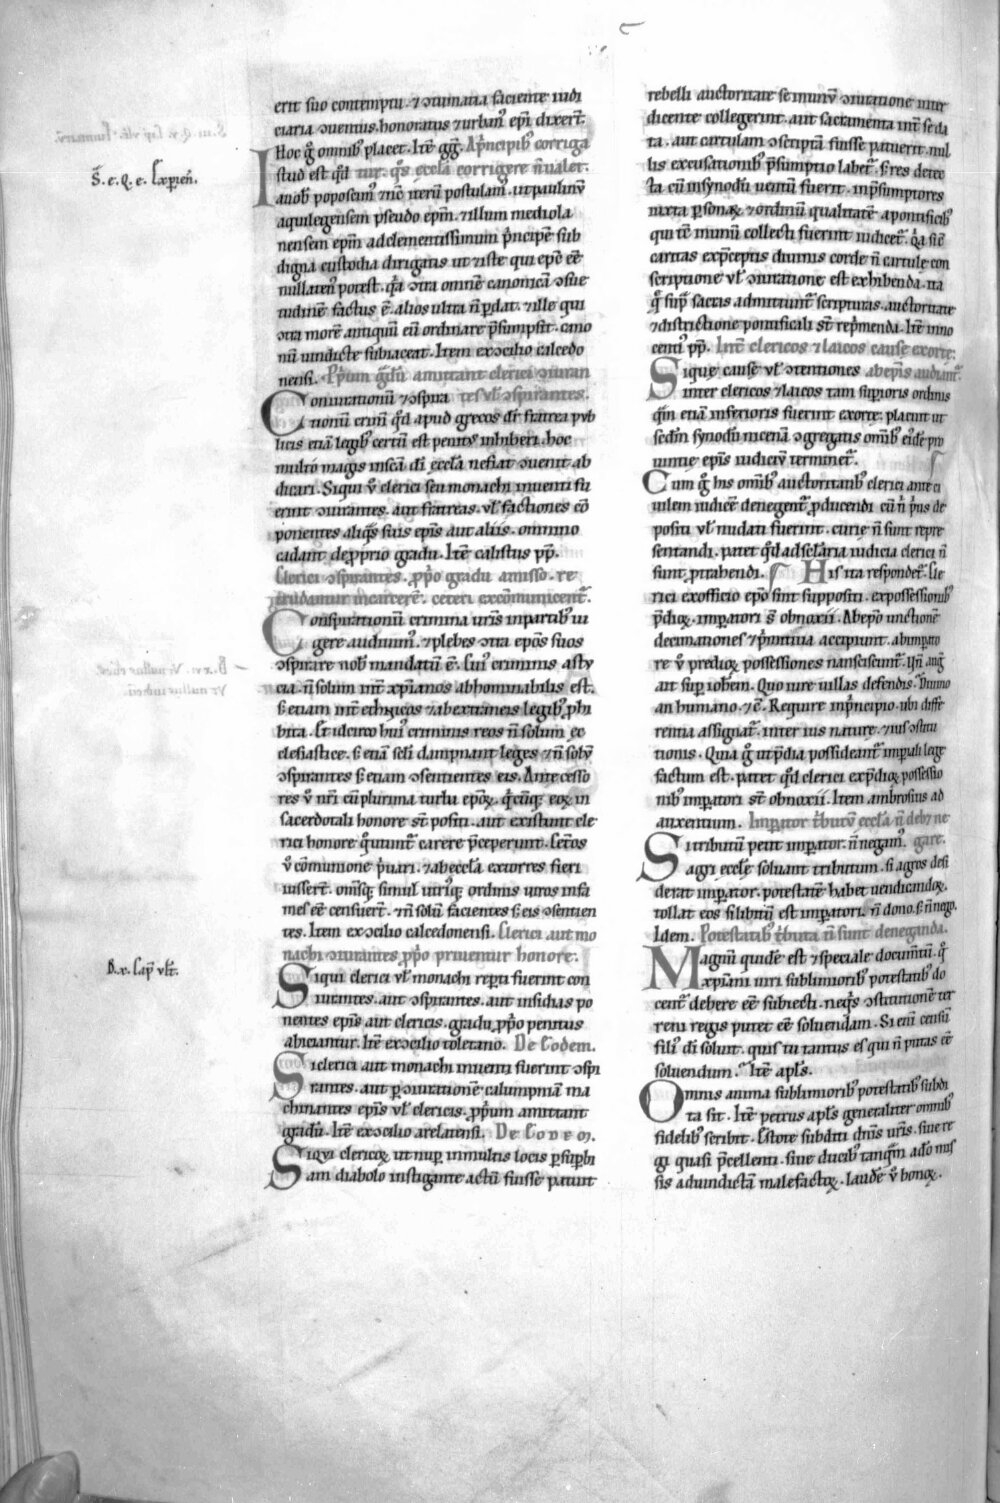 S̄. e. Q. e. Exꝑien̄.
B. v. Cap̄ vlt̄.
erit suo contemptu. ⁊ ↄtumatia faciente iudi
ciaria ↄuentus. honoratus ⁊ urban᷒ ep̄i dixert̄.
Hoc g̊ omnib᷒ placet. Itē gg̃. A p̄ncipib᷒ corriga
tur. q̊s eccl̄a corrigere n̄ ualet.
Istud est qđ
a uob̄ poposcim᷒ ⁊ nc̄ iterū postulam᷒. ut paulinū
aquilegensem pseudo ep̄m. ⁊ illum mediola
nensem ep̄m ad clementissimum p̄ncipē sub
digna custodia dirigatis ut ⁊ iste qui ep̄c eē
nullaten᷒ potest. q̄a ↄtra omnē canonicā ↄsue
tudinē factus ē. alios ultra n̄ ꝑdat. ⁊ ille qui
ↄtra morē antiquū eū ordinare p̄sumpsit. cano
nū uindicte subiaceat. Item ex ↄcilio calcedo
nensi. Pp̄rium gᵃdū amittant clerici ↄiuran
tes uł ↄspirantes.
Coniurationū ⁊ ↄspira
tionum crim̄ qđ apud grecos dr̄ fratrea pub
licis etiā legib᷒ certū est penit᷒ inhiberi. hoc
multo magis in sc̄a dī eccl̄a ne fiat ↄuenit ab
dicari. Siqui v̊ clerici seu monachi inuenti fu
erint ↄiurantes. aut fratreas. uł factiones cō
ponentes aliq̊s suis ep̄is aut aliis. omnino
cadant de ꝓprio gradu. Itē calistus pp̄.
Clerici ↄspirantes. ꝓp̄o gradu amisso. re
trudantur in carcerē. ceteri excōmunicent᷒.
Conspirationū crimina uris̄ in partib᷒ ui
gere audiuim᷒. ⁊ plebes ↄtra ep̄os suos
ↄspirare nob̄ mandatū ē. Cui᷒ criminis astu
cia. n̄ solum int̄ xp̄ianos abhominabilis est.
s; etiam int̄ ethnicos ⁊ ab extraneis legib᷒ ꝓhi
bita. Et idcirco hui᷒ criminis reos n̄ solum ec
clesiastice. s; etiā sclī dampnant leges ⁊ n̄ solū
ↄspirantes s; etiam ↄsentientes eis. Antecesso
res v̊ nr̄i cū plurima turba ep̄oꝝ. q̊cūq; eoꝝ in
sacerdotali honore st̄ positi. aut existunt cle
rici honore q̊ utunt᷒ carere p̄ceperunt. Cet̄os
v̊ cōmunione p̄uari. ⁊ ab eccl̄a extorres fieri
iussert̄. om̄sq; simul utri᷒q; ordinis uiros infa
mes eē censuert̄. ⁊ n̄ solū facientes s; eis ↄsentien
tes. Item ex ↄcilio calcedonensi. Clerici aut mo
nachi ↄiurantes ꝓp̄o priuentur honore.
Siqui clerici uł monachi repti fuerint con
iurantes. aut ↄspirantes. aut insidias po
nentes ep̄is aut clericis. gradu ꝓp̄o penitus
abiciantur. Itē ex ↄcilio toletano. De Eodem.
Si clerici aut monachi inuenti fuerint ↄspi
rantes. aut ꝑ ↄiurationē calumpniā ma
chinantes ep̄is uł clericis. ꝓp̄um amittant
gradū. Itē ex ↄcilio arelatensi. De Eodem.
Siqui clericoꝝ ut nup̄ in multis locis ꝑ suꝑbi
am diabolo instigante actū fuisse patuit
rebelli auctoritate se in unū ↄiuratione inter
dicente collegerint. aut sacramenta int̄ se da
ta. aut cartulam ↄscptā fuisse patuerit. nul
lis excusationib᷒ p̄sumptio labet᷒. s; res detec
ta cū in synodū uentū fuerit. in p̄sumptores
iuxta ꝑsonaꝝ ⁊ ordinū qualitatē a pontificib᷒
qui tc̄ in unū collecti fuerint iudicet᷒. Q̄a sic̄
caritas ex p̄ceptis diuinis corde n̄ cartule con
scriptione uł ↄiuratione est exhibenda. ita
q̊ sup̄ sacras admittunt᷒ scripturas. auctoritate
⁊ districtione pontificali st̄ rep̄menda. Itē inno
centi᷒ pp̄. Int̄ clericos ⁊ laicos cause exorte.
ab ep̄is audiant᷒.
Sique cause uł ↄtentiones
inter clericos ⁊ laicos tam suꝑioris ordinis
q̄m etiā inferioris fuerint exorte. placuit ut
sedm̄ synodū nicenā ↄgregatis om̄ib᷒ eide᷒ pro
uintie ep̄is iudiciū terminet᷒.
Cum g̊ his om̄ib᷒ auctoritatib᷒ clerici ante ci
uilem iudicē denegent᷒ ꝓducendi cū n̄ p̄us de
positi uł nudati fuerint. curie n̄ sunt repre
sentandi. patet qđ ad sclaria iudicia clerici n̄
sunt ꝑtrahendi. His ita respondet᷒. Cle
rici ex officio ep̄o sunt suppositi. ex possessionib᷒
p̄dioꝝ. imꝑatori s̄t obnoxii. Ab ep̄o unctionē
decimationes ⁊ p̄mitias accipiunt. ab imꝑato
re v̊ predioꝝ possessiones nanciscunt᷒.
ait sup̄ ioh̄em. Quo iure uillas defendis. Diuino
an humano. ⁊c̄. Require in p̄ncipio. ubi diffe
rentia assignat᷒. inter ius nature. ⁊ ius ↄstitu
tionis. Quia g̊ ut p̄dia possideant᷒ imꝑiali lege
factum est. patet qđ clerici ex p̄dioꝝ possessio
nib᷒ imꝑatori st̄ obnoxii. Item ambrosius ad
auxentium. Imꝑator t̄butū eccl̄a n̄ deb; ne
gare.
Si tributū petit imꝑator. n̄ negam᷒.
agri eccl̄e soluant tributum. si agros desi
derat imꝑator. potestatē habet uendicandoꝝ.
tollat eos si libitū est imꝑatori. n̄ dono. s; n̄ nego.
Idem. Potestatib᷒ t̄buta n̄ sunt deneganda.
Magnū quidē est ⁊ speciale documtū. q̊
xp̄iani uiri sublimiorib᷒ potestatib᷒ do
cent᷒ debere eē subiecti. ne q̊s ↄstitutionē ter
reni regis putet eē soluendam. Si eni᷒ censū
fili᷒ dī soluit. quis tu tantus es qui n̄ putas eē
soluendum. Itē apl̄s.
Omnis anima sublimiorib᷒ potestatib᷒ subdi
ta sit. Itē petrus apl̄s generaliter omnib᷒
fidelib᷒ scribit. Estote subditi dn̄is uris̄. siue re
gi quasi p̄cellenti. siue ducib᷒ tanq̄m ab eo mis
sis ad uindictā malefactoꝝ. laudē v̊ bonoꝝ.